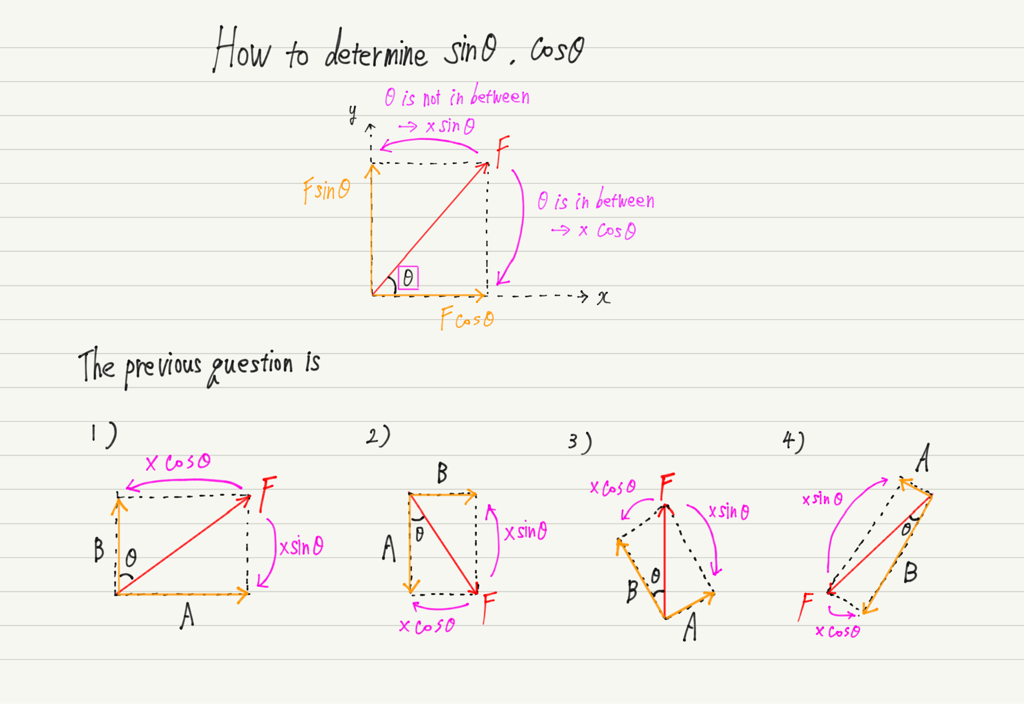 How to determine sinθ, cosθ
θ is not in between
→ x sinθ
y
F
F sinθ
θ is in between
→ x cosθ
θ
x
F cosθ
The previous question is
1)
2)
3)
4)
x cosθ
F
B
θ
x sinθ
A
B
A
θ
x sinθ
F
x cosθ
F
x cosθ
x sinθ
θ
B
A
A
x sinθ
θ
B
F
x cosθ